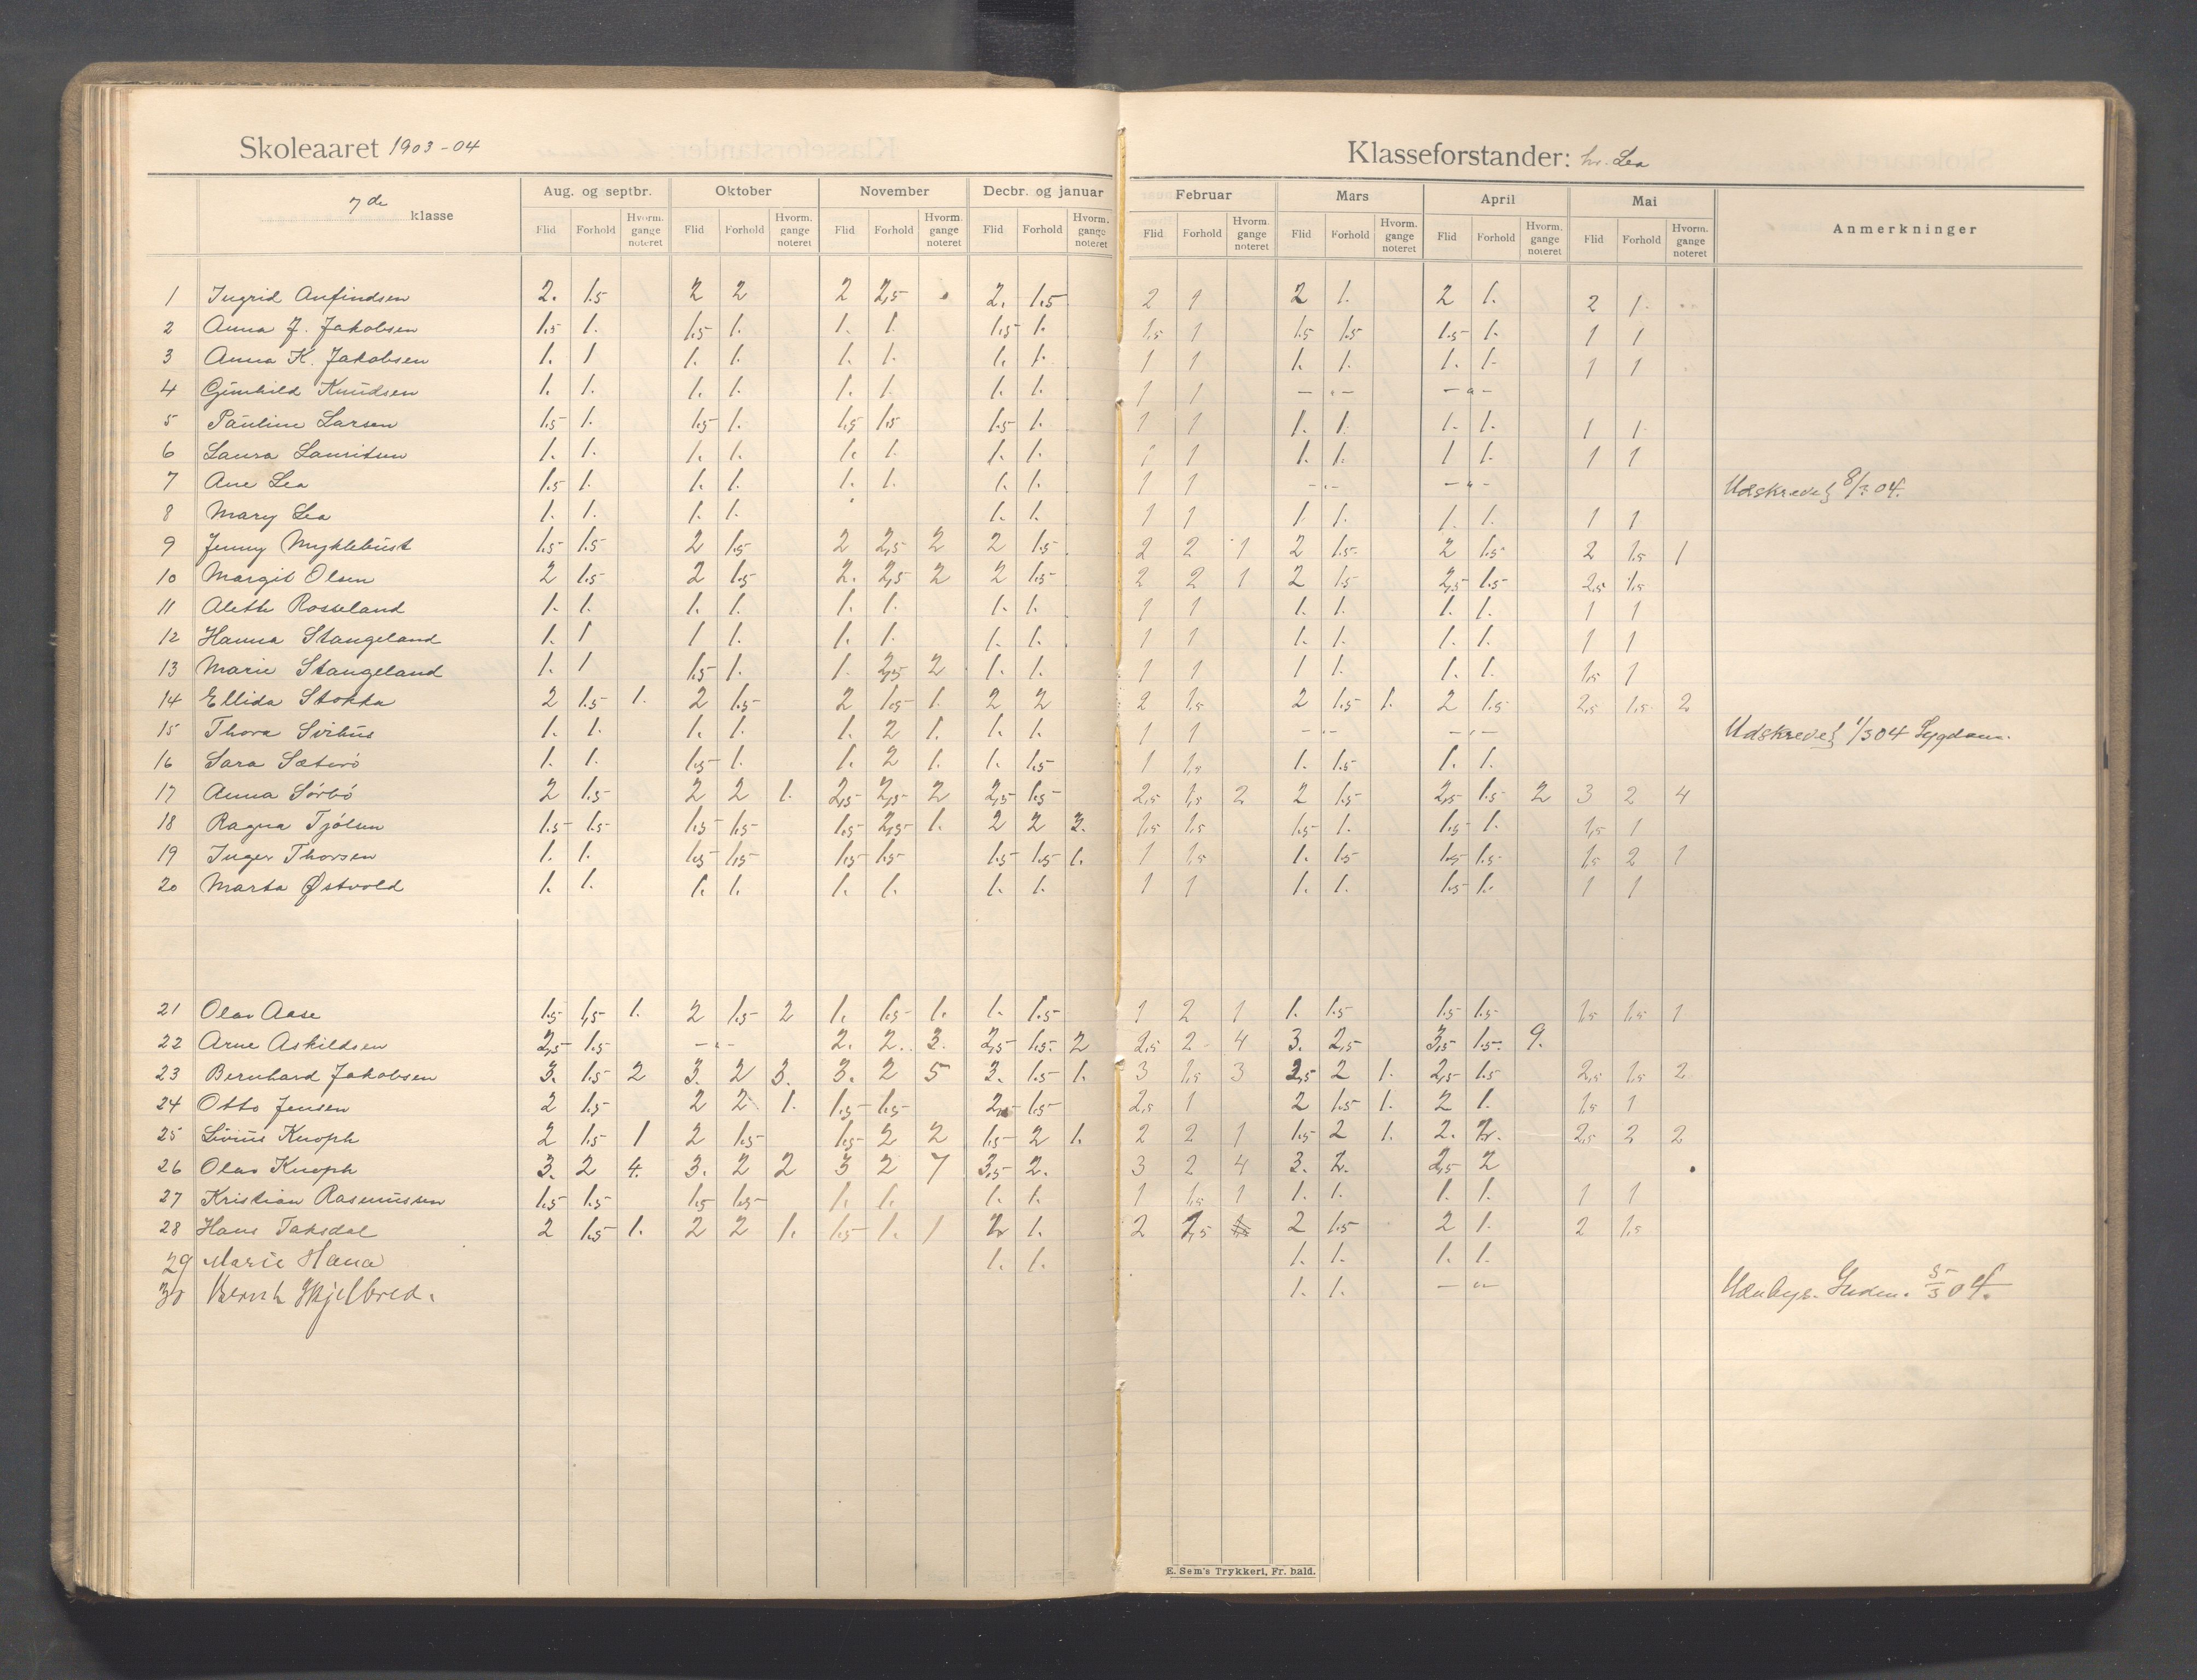 Skoleaaret 1903-04 Klasseforstander: hr. Lea
7de klasse Aug. og septbr. Oktober November Decbr. og januar Februar Mars April Mai Anmerkninger
Flid Forhold Hvorm. gange noteret Flid Forhold Hvorm. gange noteret Flid Forhold Hvorm. gange noteret Flid Forhold Hvorm. gange noteret Flid Forhold Hvorm. gange noteret Flid Forhold Hvorm. gange noteret Flid Forhold Hvorm. gange noteret Flid Forhold Hvorm. gange noteret
1 Ingrid Anfindsen 2. 1.5 2 2 2 2,5 2. 1.5 2 1 2 1. 2 1. 2 1.
2 Anna J. Jakobsen 1.5 1. 1.5 1. 1. 1. 1.5 1. 1.5 1 1.5 1.5 1.5 1. 1 1
3 Anna K. Jakobsen 1. 1 1. 1. 1. 1. 1. 1. 1 1 1. 1. 1. 1. 1 1
4 Gunhild Knudsen 1. 1. 1. 1. 1. 1. 1. 1. 1 1 — . — — " —
5 Pauline Larsen 1.5 1. 1.5 1. 1.5 1.5 1.5 1. 1 1 1. 1. 1. 1. 1 1
6 Laura Lauritsen 1. 1. 1. 1. 1. 1. 1. 1. 1 1 1. 1. 1 1. 1 1
7 Ane Lea 1.5 1. 1. 1. 1. 1. 1. 1. 1 1 — . — — " — Udskrevet 8/3 04.
8 Mary Lea 1. 1. 1. 1. 1. 1. 1 1 1. 1. 1. 1. 1 1
9 Jenny Myklebust 1.5 1.5 2 1.5 2 2,5 2 2 1.5 2 2 1 2 1.5 2 1.5 2 1.5 1
10 Margit Olsen 2 1.5 2 1.5 2. 2,5 2 2 1.5 2 2 1 2 1.5 2,5 1.5 2,5 1.5
11 Aleth Rosseland 1. 1. 1. 1. 1. 1. 1. 1. 1 1 1. 1. 1. 1. 1 1
12 Hanna Stangeland 1. 1 1 1. 1. 1. 1. 1. 1 1 1. 1. 1. 1. 1 1
13 Marie Stangeland 1. 1 1.5 1. 1. 2,5 2 1. 1. 1 1 1 1. 1. 1. 1.5 1
14 Ellida Stokka 2 1.5 1. 2 1.5 2 1.5 1. 2 2 2 1.5 2 1.5 1. 2 1.5 2,5 1.5 2
15 Thora Svihus 1. 1. 1. 1. 1. 2 1. 1. 1. 1 1 — . — — . — Udskrevet 1/3 04 Sygdom.
16 Sara Sæterö 1. 1. 1.5 1. 1. 2 1. 1. 1.5 1 1.5 1. 1.5 1. 1.
17 Anna Sörbö 2 1.5 2 2 1. 2,5 2,5 2 2,5 1.5 2,5 1.5 2 2 1.5 2,5 1.5 2 3 2 4
18 Ragna Tjölsen 1.5 1.5 1.5 1.5 1.5 2,5 1. 2 2 3. 1.5 1.5 1.5 1. 1.5 1. 1,5 1
19 Inger Thorsen 1. 1. 1.5 1.5 1.5 1.5 1.5 1.5 1. 1 1.5 1. 1.5 1.5 1.5 1.5 2 1
20 Marta Østvold 1. 1. 1. 1. 1. 1. 1. 1. 1 1 1. 1. 1.5 1. 1 1
21 Olav Aase 1.5 1,5 1. 2 1.5 2 1. 1.5 1. 1. 1.5 1 2 1 1. 1.5 1.5 1.5 1.5 1.5 1
22 Arne Askildsen 2,5 1.5 — " — 2. 2. 3. 2,5 1.5. 2 2.5 2 4 3. 2,5 3,5 1.5. 9.
23 Bernhard Jakobsen 3. 1.5 2 3. 2 3. 3. 2 5 3. 1.5 1. 3 1.5 3 2,5 2 1. 2,5 1.5 2,5 1.5 2
24 Otto Jensen 2 1.5 2 2 1. 1.5 1.5 2,5 1.5 2,5 1 2 1.5 1. 2 1. 1.5 1
25 Livius Knoph 2 1.5 1 2 1.5 1.5 2 2 1.5 2 1. 2 2 1 1.5 2 1. 2. 2. 2,5 2 2
26 Olav Knoph 3. 2 4. 3. 2 2 3 2 7 3,5 2. 3 2 4 3. 2. 2,5 2
27 Kristian Rasmussen 1.5 1.5 1.5 1.5 1. 1. 1. 1. 1 1.5 1 1. 1. 1. 1. 1 1
28 Hans Taksdal 2 1.5 1. 2 2 1. 1.5 1. 1 2 1. 2 2,5 2 1.5 2 1. 2 1.5
29 Marie Hana 1. 1. 1. 1. 1. 1.
30 Skjelbred. 1. 1. — " — 5/3 04.
E. Sem's Trykkeri, Fr. hald.